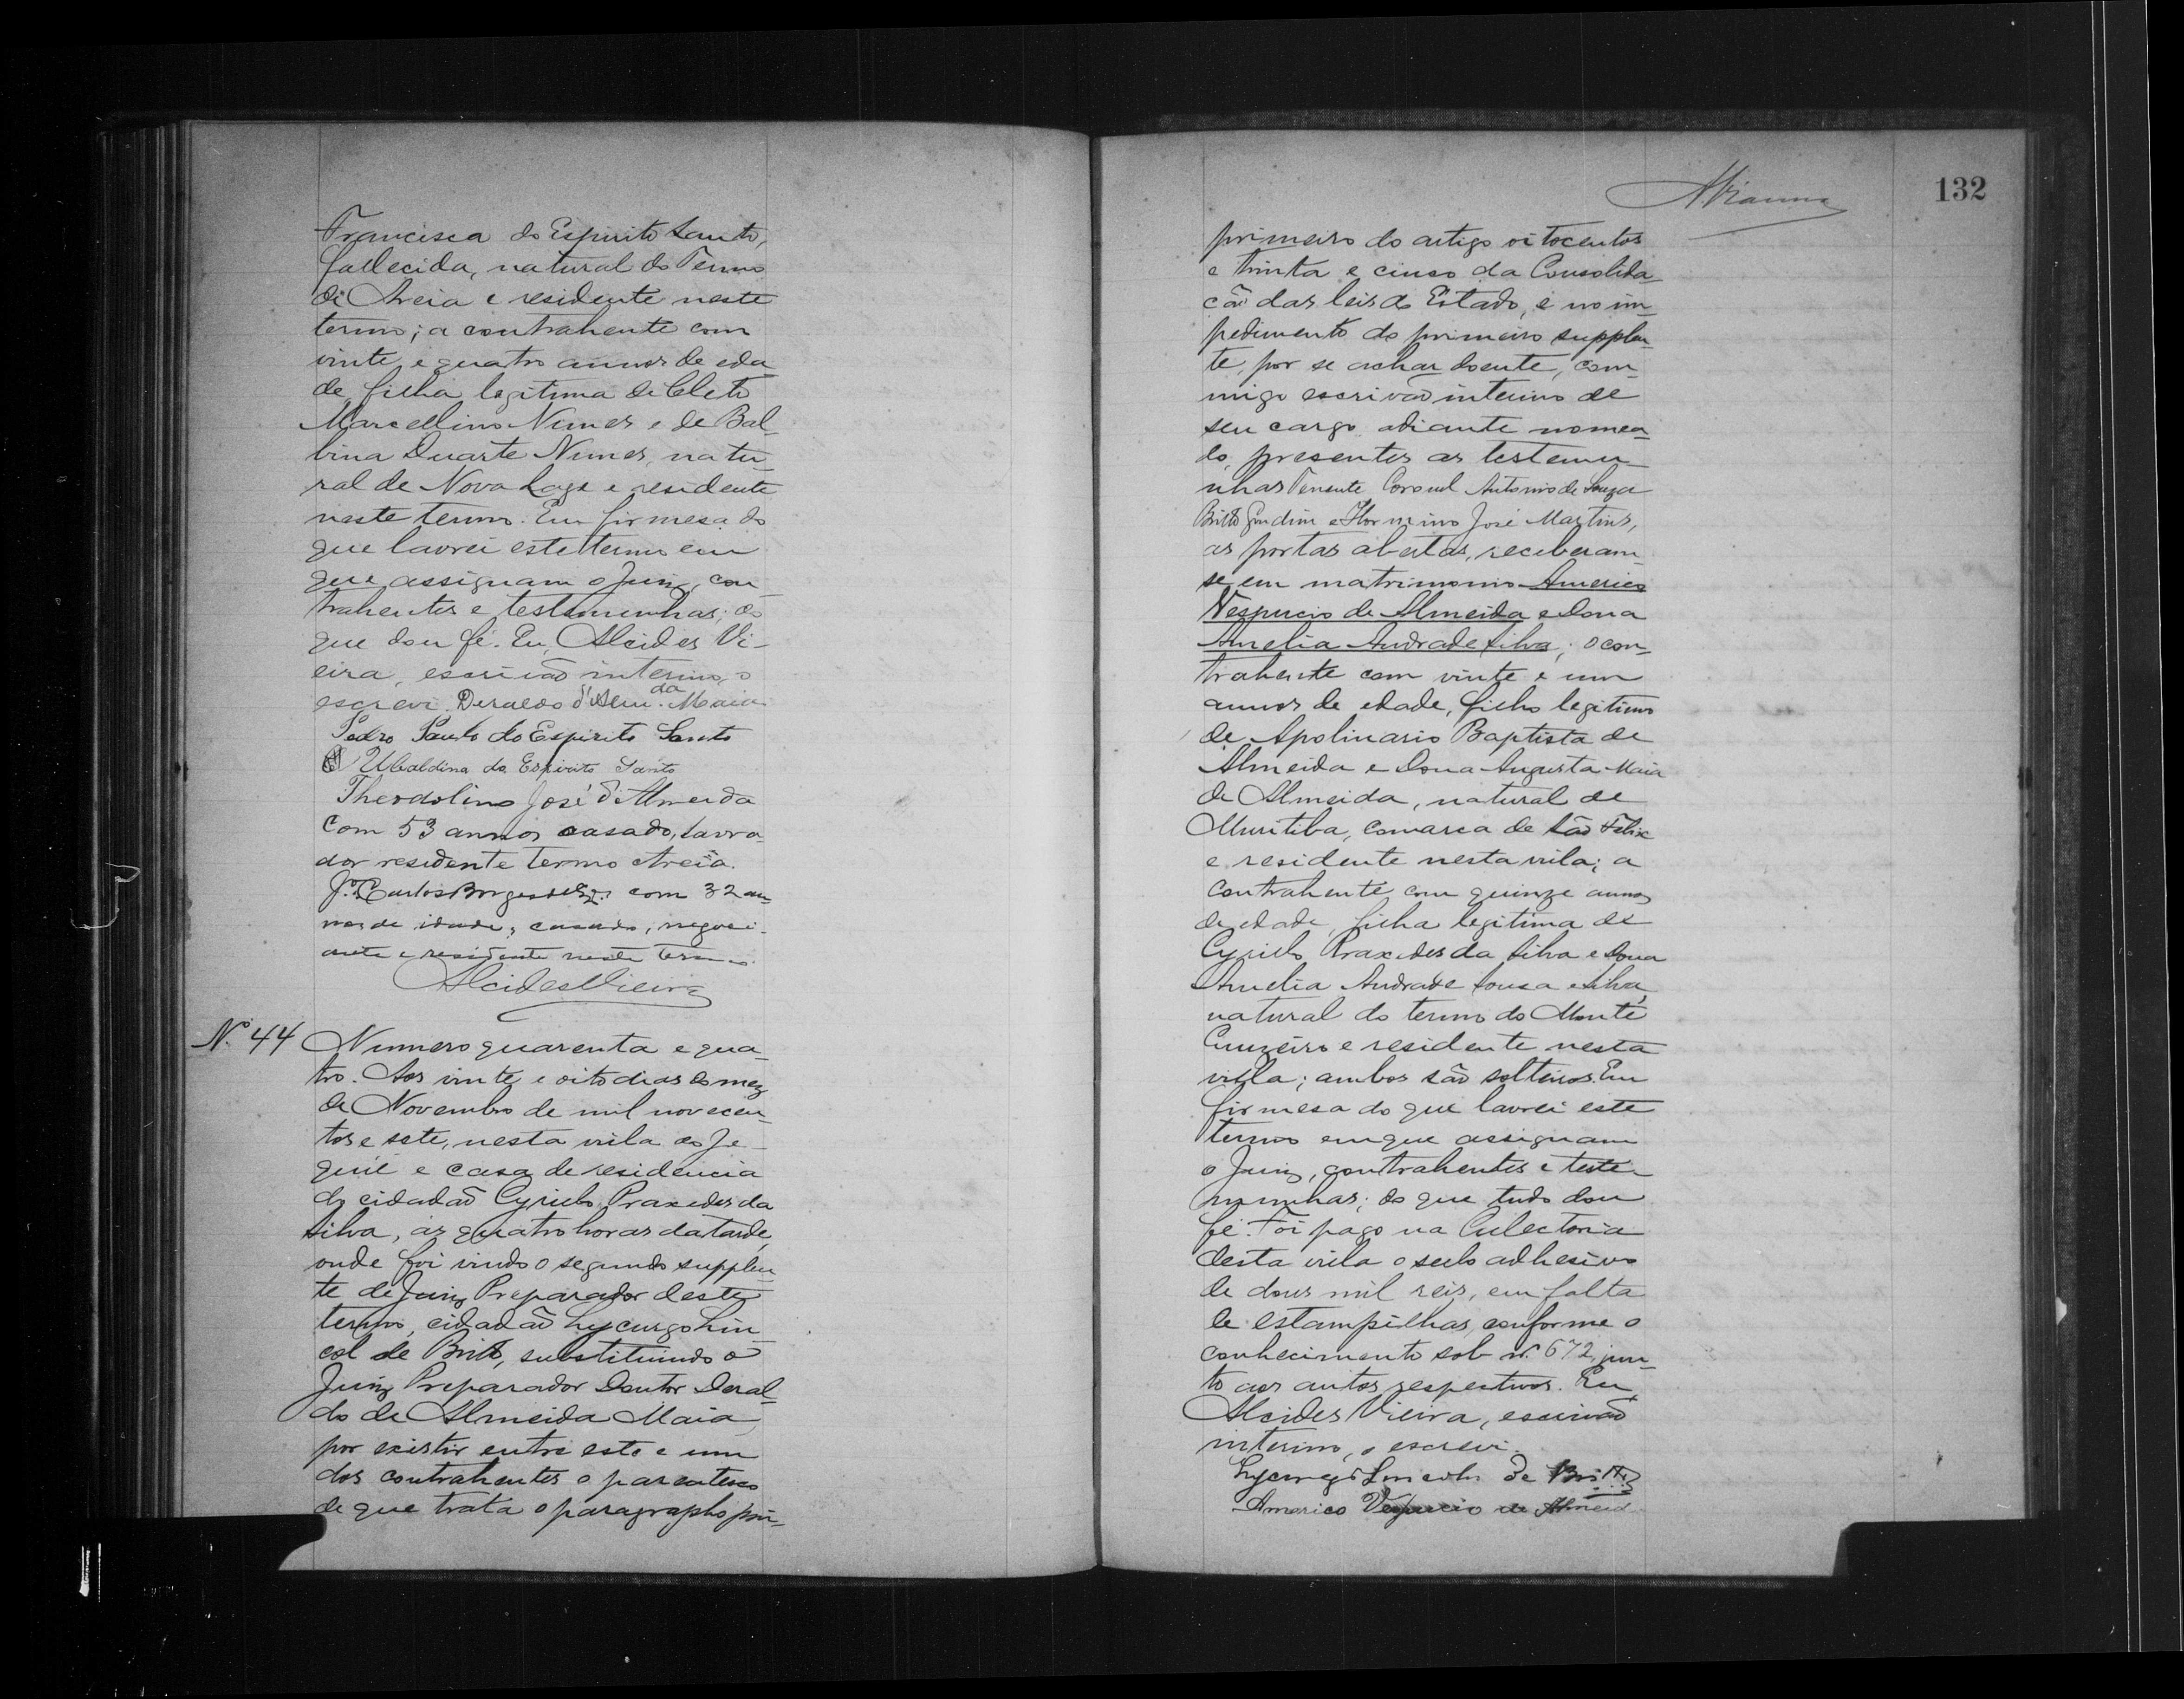 Francisca do Espirito Santo,
fallecida, natural do Termo
de Areia e residente neste
termo; a contrahente com
vinte e quatro annos de eda
de, filha legitima de Cleto
Marcellino Nunes e de Bal_
bina Duarte Nunes, natu_
ral de Nova Lage e residente
neste termo. Em firmesa do
que lavrei este termo em
que assignam o Juiz, con_
trahentes e testemunhas; do
que dou fé. Eu, Alcides Vi-
eira, escrivão interino, o
escrevi. Deraldo d'Alm.da Maia
Pedro Paulo do Espirito Santo
Ubaldina do Espirito Santo
Theodolino José d'Almeida
Com 53 annos casado, lavra-
dor residente termo Areia.
J. Carlos Borges de com 32 an-
nos de idade, casado, negoci-
ante e residente neste termo.
Alcides Vieira
Nº 44 Numero quarenta e qua_
tro. Aos vinte e oito dias do mez
de Novembro de mil novecen_
tos e sete, nesta villa de Je_
quié e casa de residencia
do cidadão Cyrillo Praxedes da
Silva, ás quatro horas da tarde,
onde foi vindo o segundo supplen_
te de Juiz Preparador deste
termo, cidadão Lycurgo Lin_
col de Britto, substituindo o
Juiz Preparador Doutor Deral_
do de Almeida Maia,
por existir entre este e um
dos contrahentes o parentesco
de que trata o paragrapho pri_
132
primeiro do artigo oitocentos
e trinta e cinco da Consolida_
ção das leis do Estado, e no im_
pedimento do primeiro supplen_
te, por se achar doente, com_
migo escrivão interino de
seu cargo adiante nomea_
do, presentes as testemu_
nhas Tenente Coronel Antonio de Souza
Britto Gondim e Hormino José Martins,
as portas abertas, receberam_
se em matrimonio Americo
Vespucio de Almeida e Dona
Amelia Andrade Silva; o con_
trahente com vinte e um
annos de edade, filho legitimo
de Apolinario Baptista de
Almeida e Dona Augusta Maia
de Almeida, natural de
Muritiba, comarca de São Felix
e residente nesta villa; a
contrahente com quinze annos
de edade, filha legitima de
Cyrillo Praxedes da Silva e Dona
Amelia Andrade Sousa e Silva,
natural do termo do Monte
Cruzeiro e residente nesta
villa; ambos são solteiros. Em
firmesa do que lavrei este
termo em que assignam
o Juiz, contrahentes e teste_
munhas; do que tudo dou
fé. Foi pago na Culectoria
desta villa o sello adhesivo
de dous mil reis, em falta
de estampilhas, conforme o
conhecimento sob nº 672, jun_
to aos autos respectivos. Eu,
Alcides Vieira, escrivão
interino, o escrevi.
Lycurgo Lincoln de Britto
Americo Vespucio de Almeida